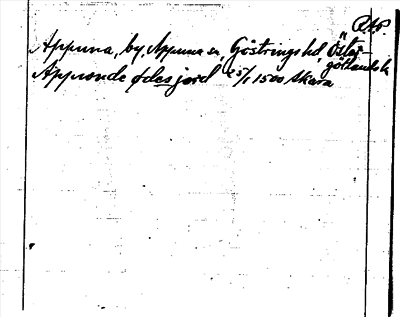 RAP.
Appuna, by, Appuna sn, Göstrings hd, Öster-
götlands l.
Appronde ødesjord 25/1 1500 Skara